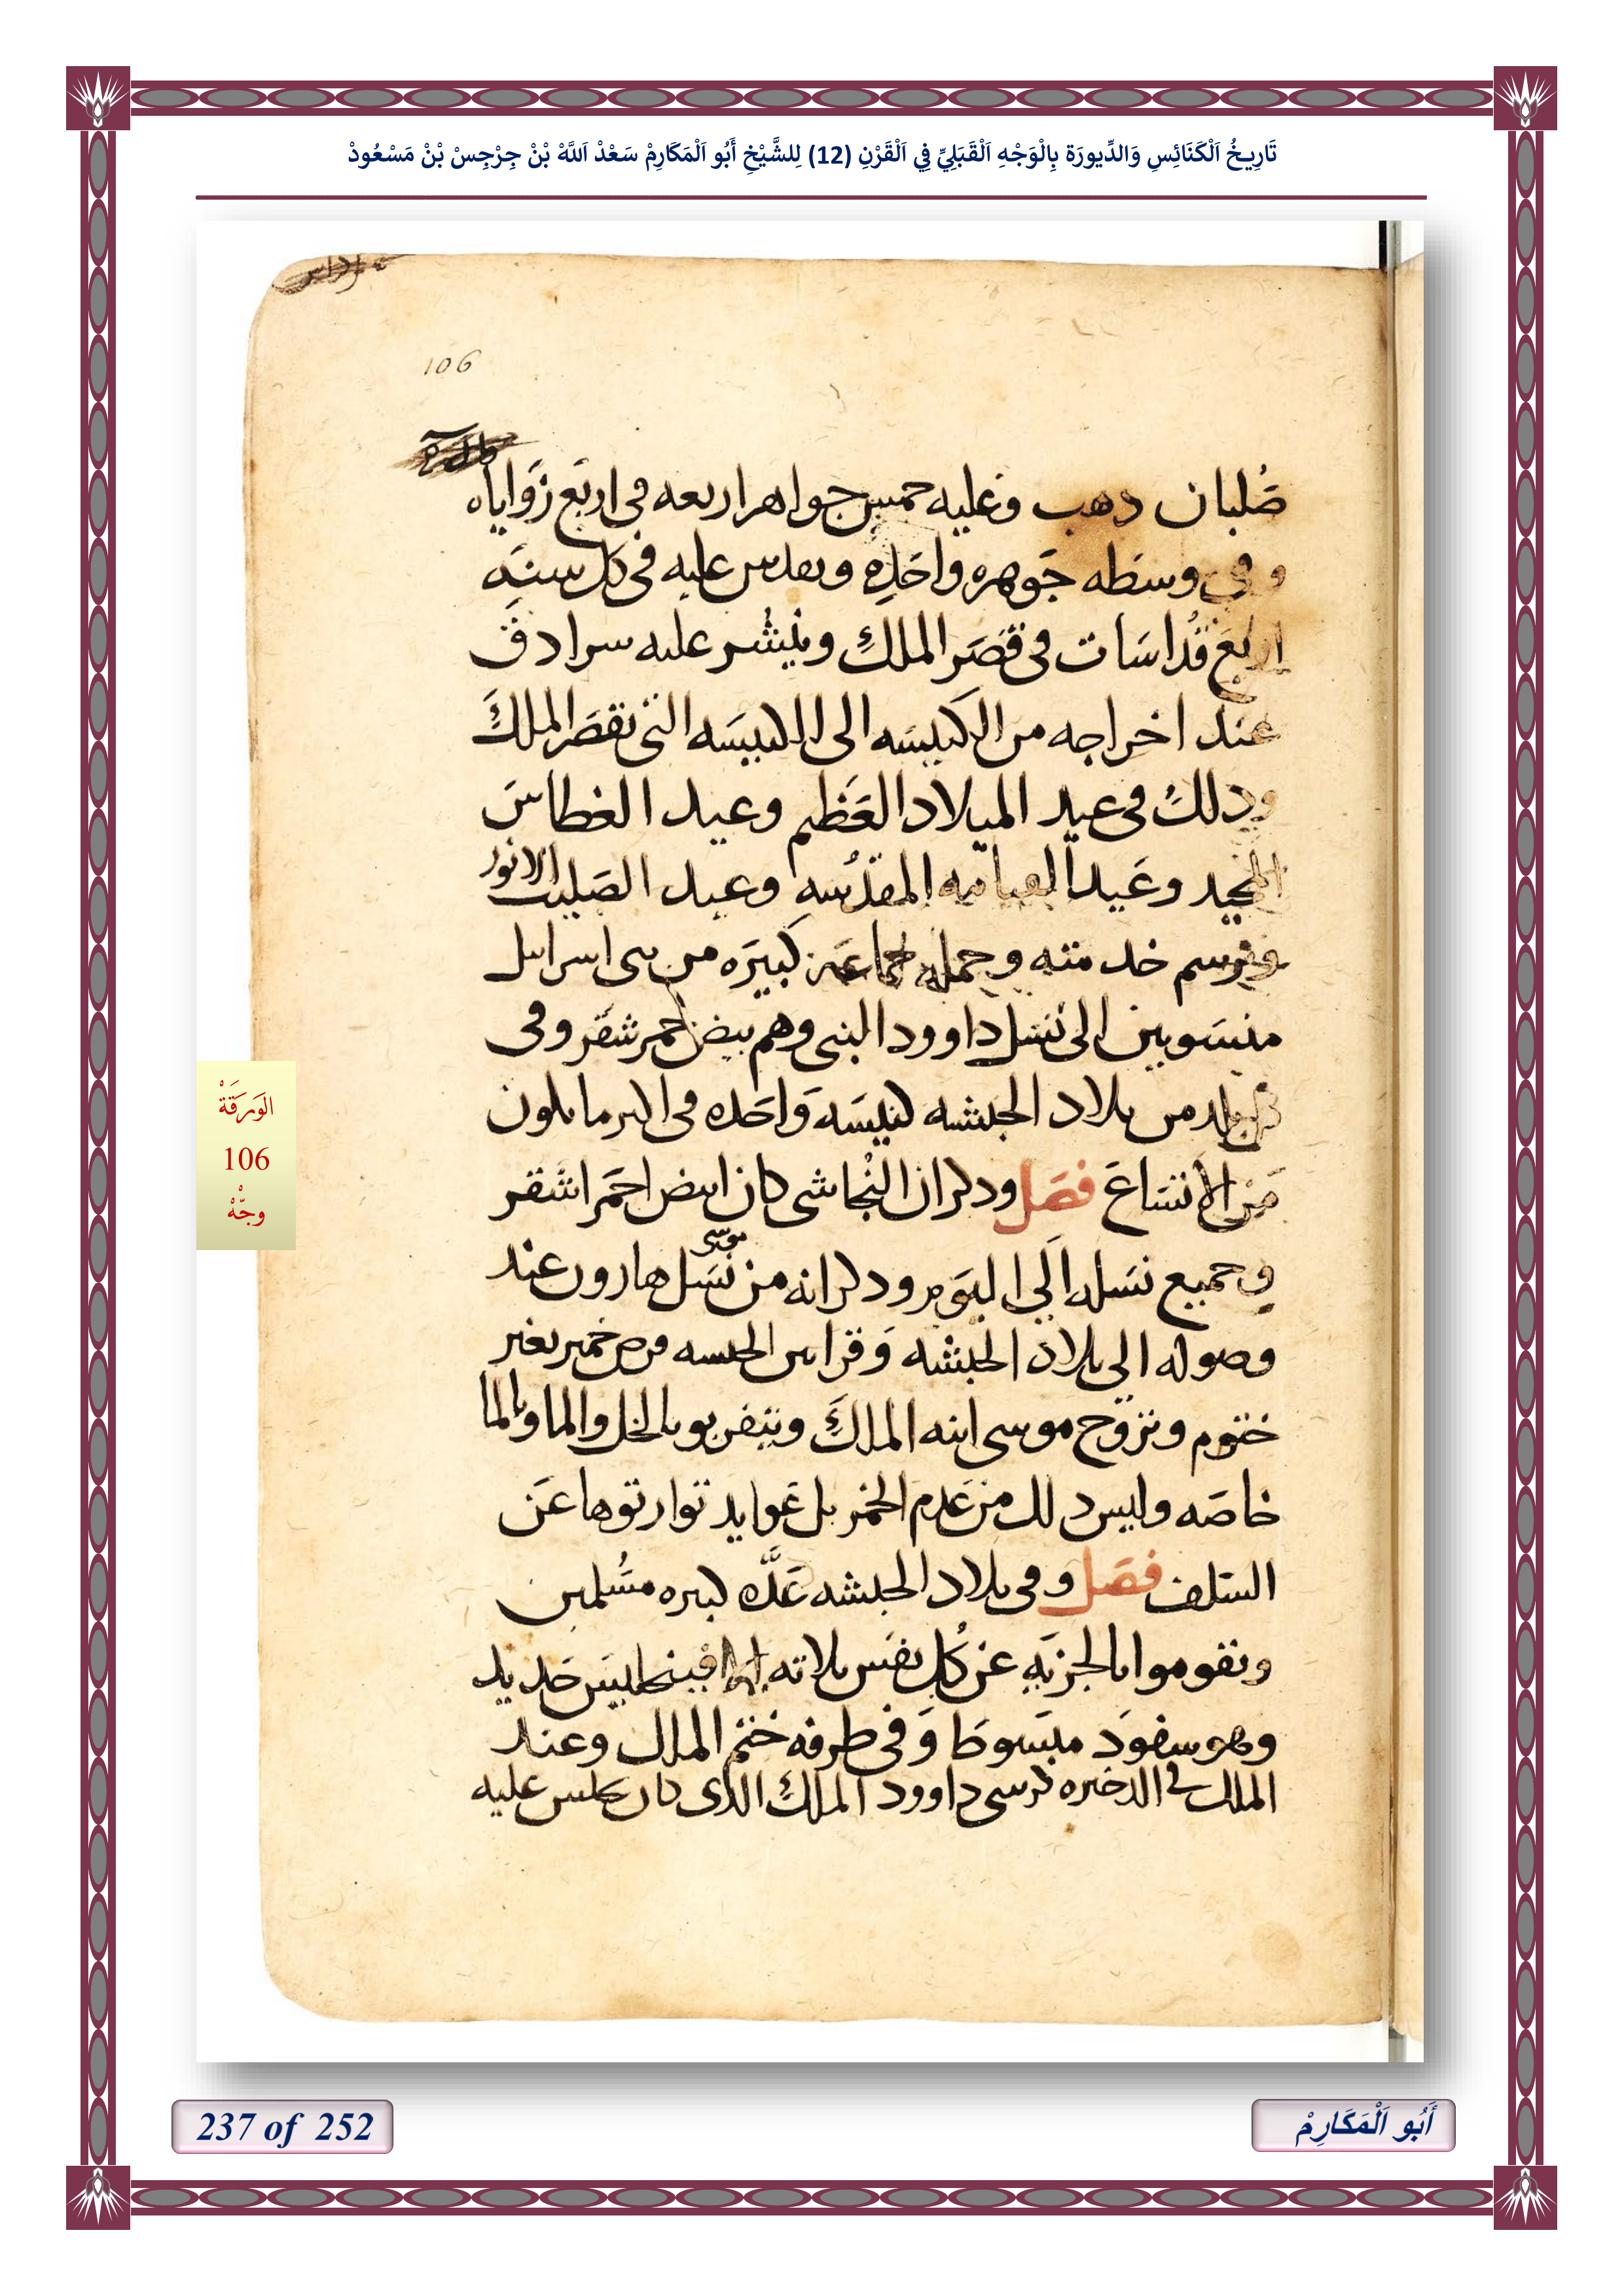 تَارِيخُ اَلْكَنَائِسِ وَالدِّيورَة بِالْوَجْهِ اَلْقَبَلِيِّ فِي اَلْقَرْنِ (12) لِلشَّيْخِ أَبُو اَلْمَكَارِمْ سَعْدْ اَللَّهْ بْنْ جِرْجِسْ بْنْ مَسْعُودْ
106
صُلبان دهب وعليه خمس جواهر اربعه فى اربع زَواياه
وفي وسطه جَوهره واحَده ويقدس عليه فى كل سنَه
اربع قُداسَات فى قصَر الملك وينشر عليه سرادق
عند اخراجه من الكنيسَه الى الكنيسَه التى بقصَر الملكَ
ودلك فى عيد الميلاد العَظيم وعيد الغطاسَ
المجيد وعَيد القيامه المقدسه وعيد الصَليب الانور
وبرسم خدمته وحمله جماعَه كبيَره من بنى اسرايل
منسَوبين الى نسَل داوود النبى وهم بيض حمر شقر وفى
كل بلد من بلاد الحبشه كنيسَه وَاحَده فى اكبر ما يكون
مَن الاتسَاعَ فصَل ودكر ان النجاشى كان ابيض احمَر اشقر
وجميع نسَله اَلي اليَوم ودكر انه من نسَل موسى هارون عند
وصوله الى بلاد الحبشه وَقرابين الحبشه قرص خمير بغير
ختوم وتزوج موسى ابنه الملكَ ويتقربو بالخل والما وبالما
خاصَه وليس دلك من عَدم الخمر بل عَوايد توارتوها عَن
السَلف فصَل وفى بلاد الحبشه عَدَّه كبيره مسُلمين
ويقوموا بالجزيَه عن كُل نفسَ تلاته حَديد
وهو سفود مبسَوطَا وَفى طرفه ختم الملك وعند
الملك فى الدخيره كرسى داوود الملكَ الدى كان يجلس عليه
الوَرَقَةْ
106
وجّهْ
237 of 252
أَبُو اَلْمَكَارِمْ